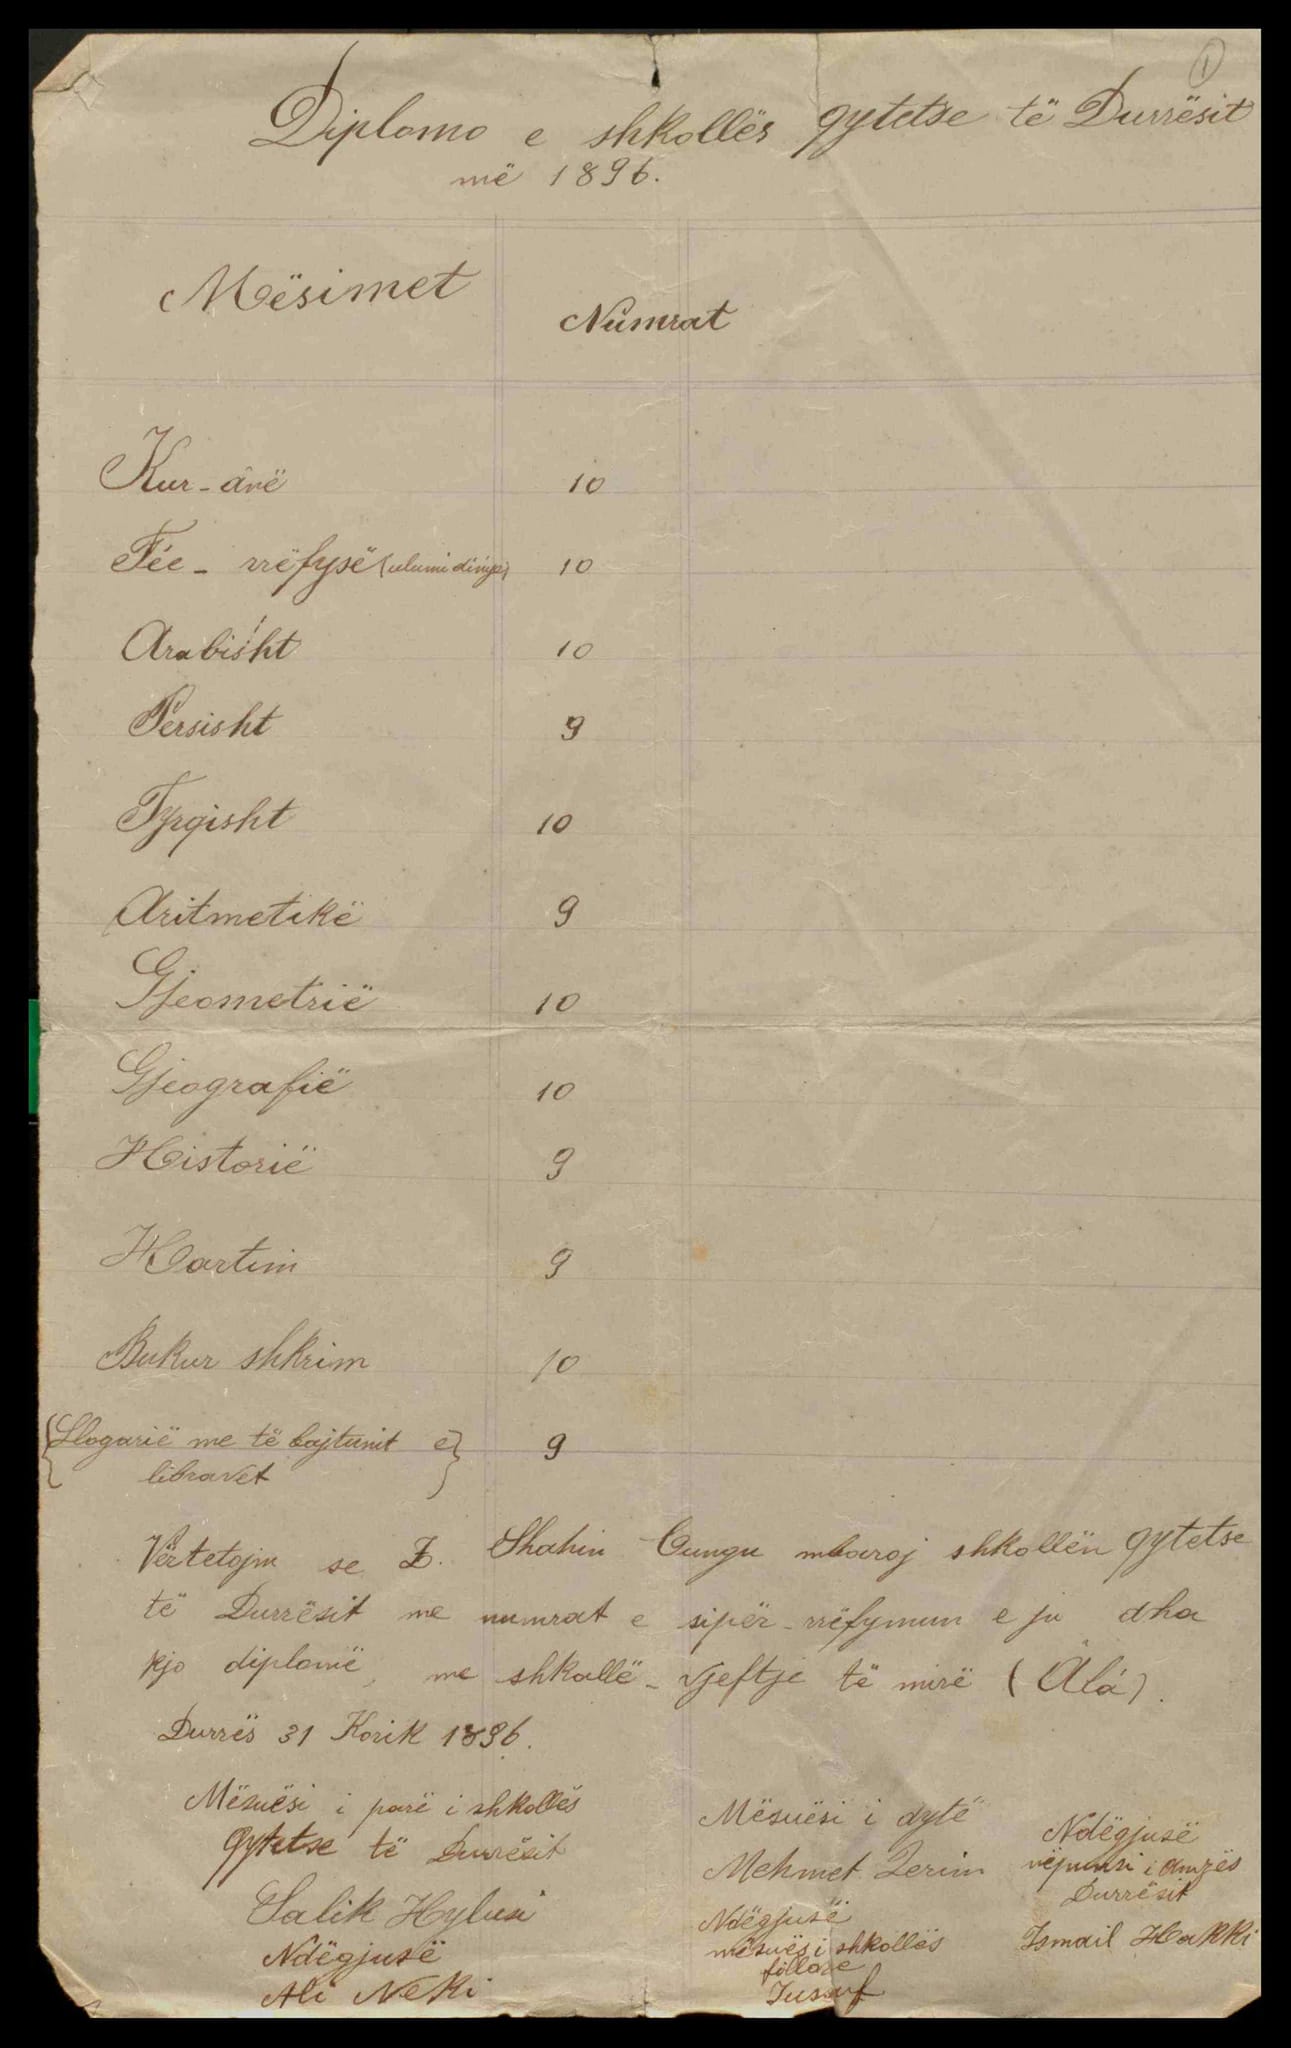 1
Diplomo e shkollës qytetse të Durrësit
më 1896.
Mësimet Numrat
Kur-anë 10
Fée-rrëfysë (ulumi dinije) 10
Arabisht 10
Persisht 9
Tyrqisht 10
Aritmetikë 9
Gjeometrië 10
Gjeografië 10
Historië 9
Hartim 9
Bukur shkrim 10
{Llogarië me të bajtunit e} 9
libravet
Vërtetojm se Z. Shahin Cungu mbaroj shkollën qytetse
të Durrësit me numrat e sipër-rrëfymun e ju dha
kjo diplomë, me shkallë-vjeftje të mirë (Âlá).
Durrës 31 Korik 1896.
Mësuësi i parë i shkollës
qytetse të Durrësit
Salik Hylusi
Ndëgjusë
Ali Neki
Mësuësi i dytë
Mehmet Zerim
Ndëgjusë
mësuës i shkollës
fillore
Jussuf
Ndëgjusë
nëpunsi i Amzës
Durrësit
Ismail Hakki